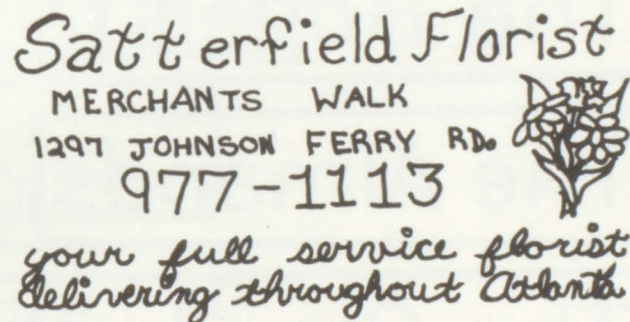 Satterfield Florist
MERCHANTS WALK
1297 JOHNSON FERRY RD.
977-1113
your full service florist
delivering throughout Atlanta